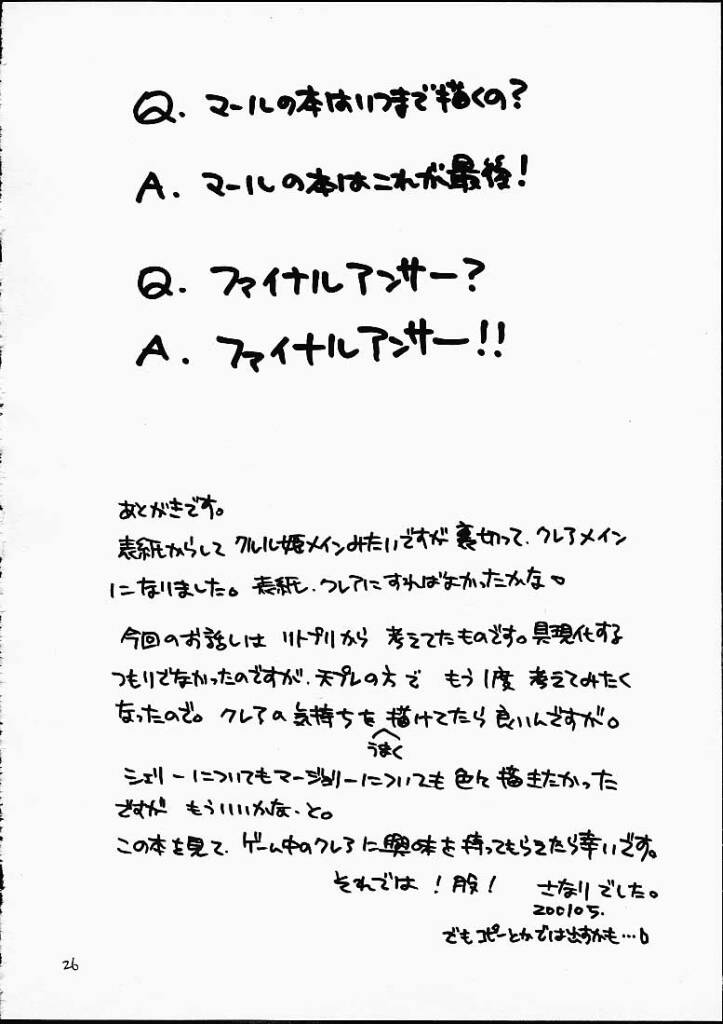 Q. マールの本はいつまで描くの？
A. マールの本はこれが最後！
Q. ファイナルアンサー？
A. ファイナルアンサー！！
あとがきです。
表紙からして クルル姫メインみたいですが 裏切って、クレアメイン
になりました。表紙、クレアにすればよかったかな。
今回のお話しは リトプリから 考えてたものです。具現化する
つもりでなかったのですが、天プレの方で もう1度 考えてみたく
なったので。クレアの気持ちを 描けてたら 良いんですが。
うまく
シェリーについてもマージョリーについても 色々 描きたかった
ですが もういいかな、と。
この本を見て、ゲーム中のクレアに興味を持ってもらえたら幸いです。
それでは！股！ さなりでした。
200105.
でもコピーとかでは出すかも…
26